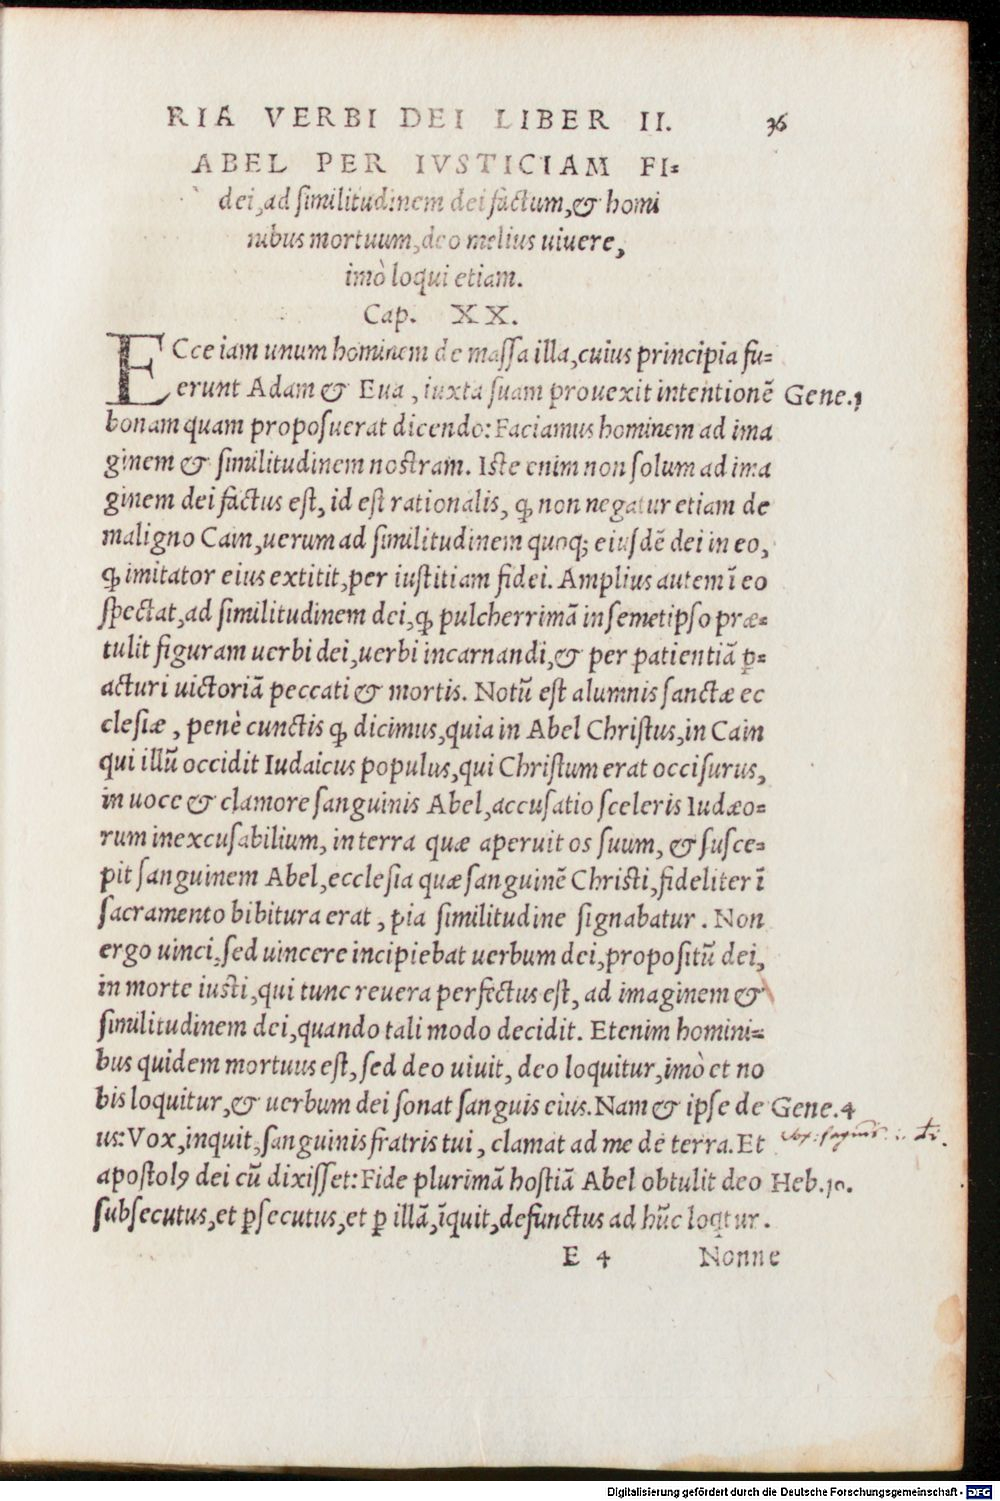 RIA VERBI DEI LIBER II. 36
ABEL PER IVSTICIAM FI=
dei, ad similitudinem dei factum, & homi
nibus mortuum, deo melius uiuere,
imò loqui etiam.
Cap. XX.
ECce iam unum hominem de massa illa, cuius principia fu=
erunt Adam & Eua, iuxta suam prouexit intentionē Gene.1
bonam quam proposuerat dicendo: Faciamus hominem ad ima
ginem & similitudinem nostram. Iste enim non solum ad ima
ginem dei factus est, id est rationalis, ꝙ non negatur etiam de
maligno Cain, uerum ad similitudinem quoqꝫ eiusdē dei in eo,
ꝙ imitator eius extitit, per iustitiam fidei. Amplius autem ī eo
spectat, ad similitudinem dei, ꝙ pulcherrimā in semetipso præ=
tulit figuram uerbi dei, uerbi incarnandi, & per patientiā ꝑ=
acturi uictoriā peccati & mortis. Notū est alumnis sanctæ ec
clesiæ, penè cunctis ꝙ dicimus, quia in Abel Christus, in Cain
qui illū occidit Iudaicus populus, qui Christum erat occisurus,
in uoce & clamore sanguinis Abel, accusatio sceleris Iudæo=
rum inexcusabilium, in terra quæ aperuit os suum, & susce=
pit sanguinem Abel, ecclesia quæ sanguinē Christi, fideliter ī
sacramento bibitura erat, pia similitudine signabatur. Non
ergo uinci, sed uincere incipiebat uerbum dei, propositū dei,
in morte iusti, qui tunc reuera perfectus est, ad imaginem &
similitudinem dei, quando tali modo decidit. Etenim homini=
bus quidem mortuus est, sed deo uiuit, deo loquitur, imò et no
bis loquitur, & uerbum dei sonat sanguis eius. Nam & ipse de Gene.4
us: Vox, inquit, sanguinis fratris tui, clamat ad me de terra. Et
apostolꝰ dei cū dixisset: Fide plurimā hostiā Abel obtulit deo Heb.10.
subsecutus, et ꝑsecutus, et ꝑ illā, īquit, defunctus ad hūc loqtur.
E 4 Nonne
Digitalisierung gefördert durch die Deutsche Forschungsgemeinschaft - DFG